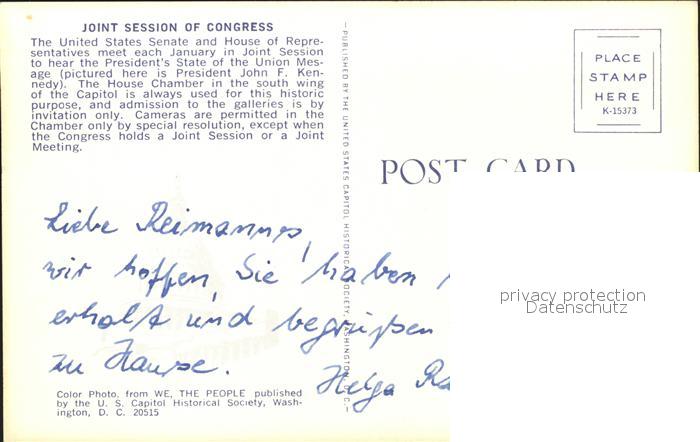 JOINT SESSION OF CONGRESS
The United States Senate and House of Repre-
sentatives meet each January in Joint Session
to hear the President's State of the Union Mes-
sage (pictured here is President John F. Ken-
nedy). The House Chamber in the south wing
of the Capitol is always used for this historic
purpose, and admission to the galleries is by
invitation only. Cameras are permitted in the
Chamber only by special resolution, except when
the Congress holds a Joint Session or a Joint
Meeting.
PLACE
STAMP
HERE
K-15373
POST CARD
Liebe Reimanns,
wir hoffen, Sie haben
erholt und begrüßen
zu Hause.
Helga
privacy protection
Datenschutz
Color Photo. from WE, THE PEOPLE published
by the U. S. Capitol Historical Society, Wash-
ington, D. C. 20515
—PUBLISHED BY THE UNITED STATES CAPITOL HISTORICAL SOCIETY, WASHINGTON, D.C.—